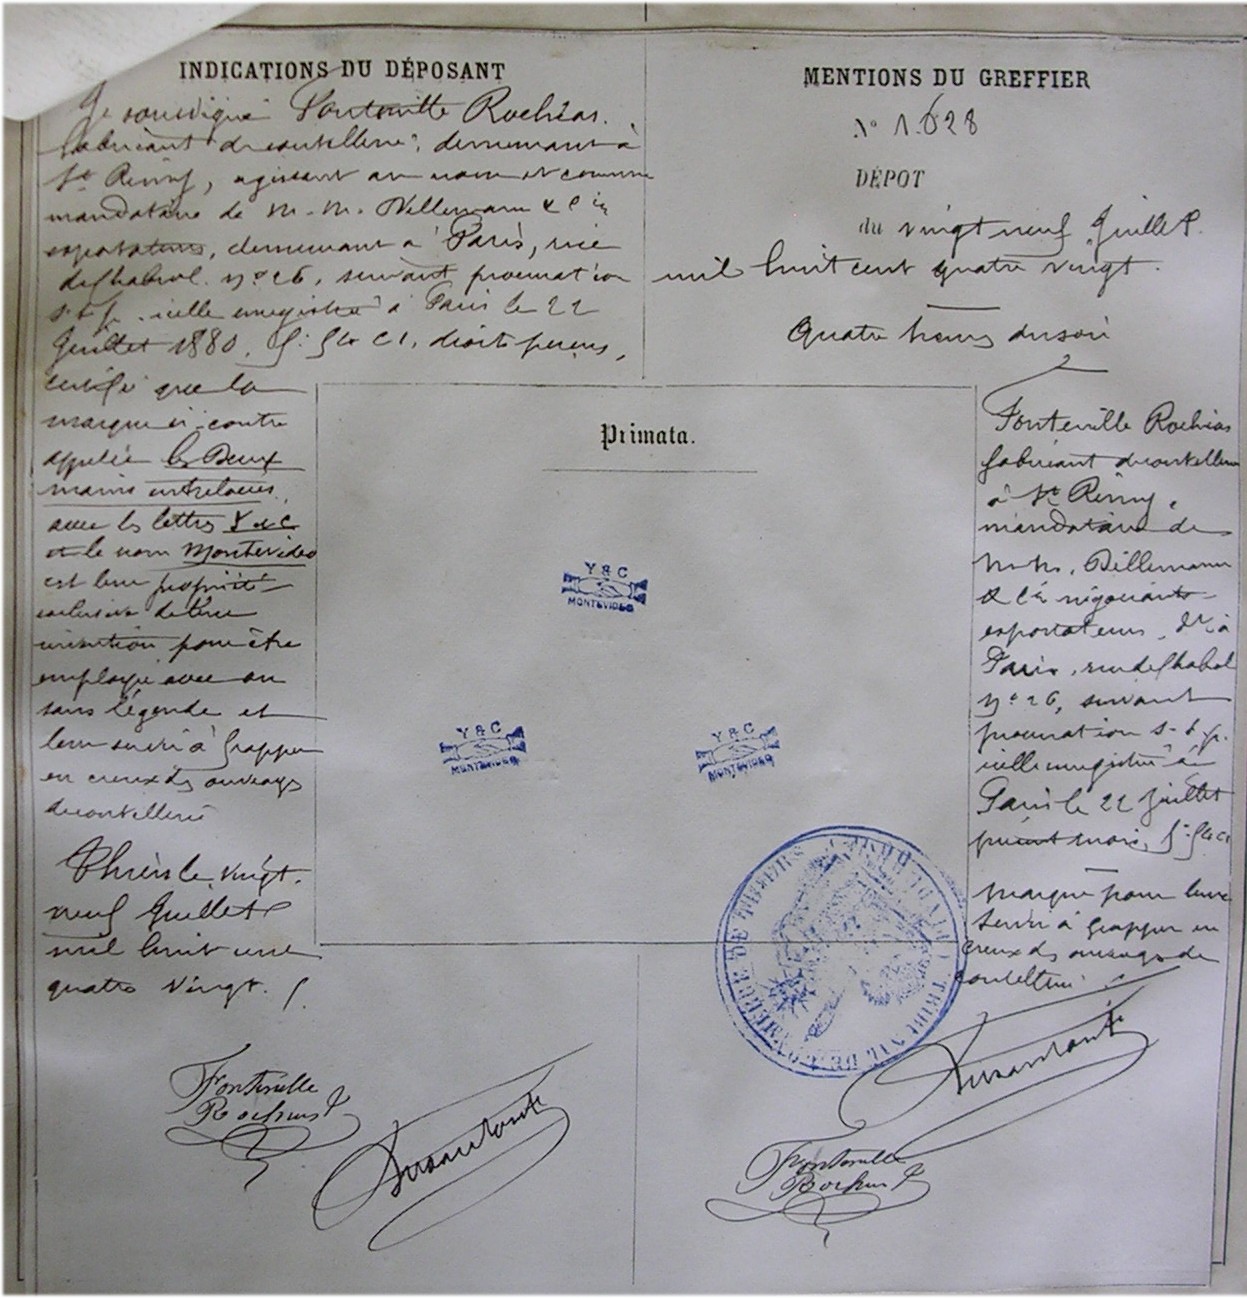 INDICATIONS DU DÉPOSANT
Je soussigné Fontenille Rochias
fabricant de coutellerie, demeurant à
St Rémy, agissant au nom et comme
mandataire de M. M. & Cie
exportateurs, demeurant à Paris, rue
de Chabrol no 26, suivant procuration
s. s. p. icelle enregistrée à Paris le 22
Juillet 1880, droits perçus,
certifie que la
marque ci-contre
appelée les Deux
mains entrelacées
avec les lettres Y & C
et le nom Montevideo
est leur propriété
exclusive de leur
invention pour être
employée avec ou
sans légende et
leur servir à frapper
en creux des ouvrages
de coutellerie
Thiers le vingt
neuf Juillet
mil huit cent
quatre vingt.
Fontenille
Rochias
MENTIONS DU GREFFIER
No 1.628
DÉPOT
du vingt neuf Juillet
mil huit cent quatre vingt.
Quatre heures du soir
Primata.
Y & C
MONTEVIDEO
Y & C
MONTEVIDEO
Y & C
MONTEVIDEO
Fontenille Rochias
fabricant de coutellerie
à St Rémy,
mandataire de
M. M.
& Cie négociants
exportateurs, dt à
Paris, rue de Chabrol
no 26, suivant
procuration s. s. p.
icelle enregistrée à
Paris le 22 Juillet
présent mois,
marque pour leur
servir à frapper en
creux des ouvrages de
coutellerie
TRIBUNAL DE COMMERCE DE THIERS
Fontenille
Rochias